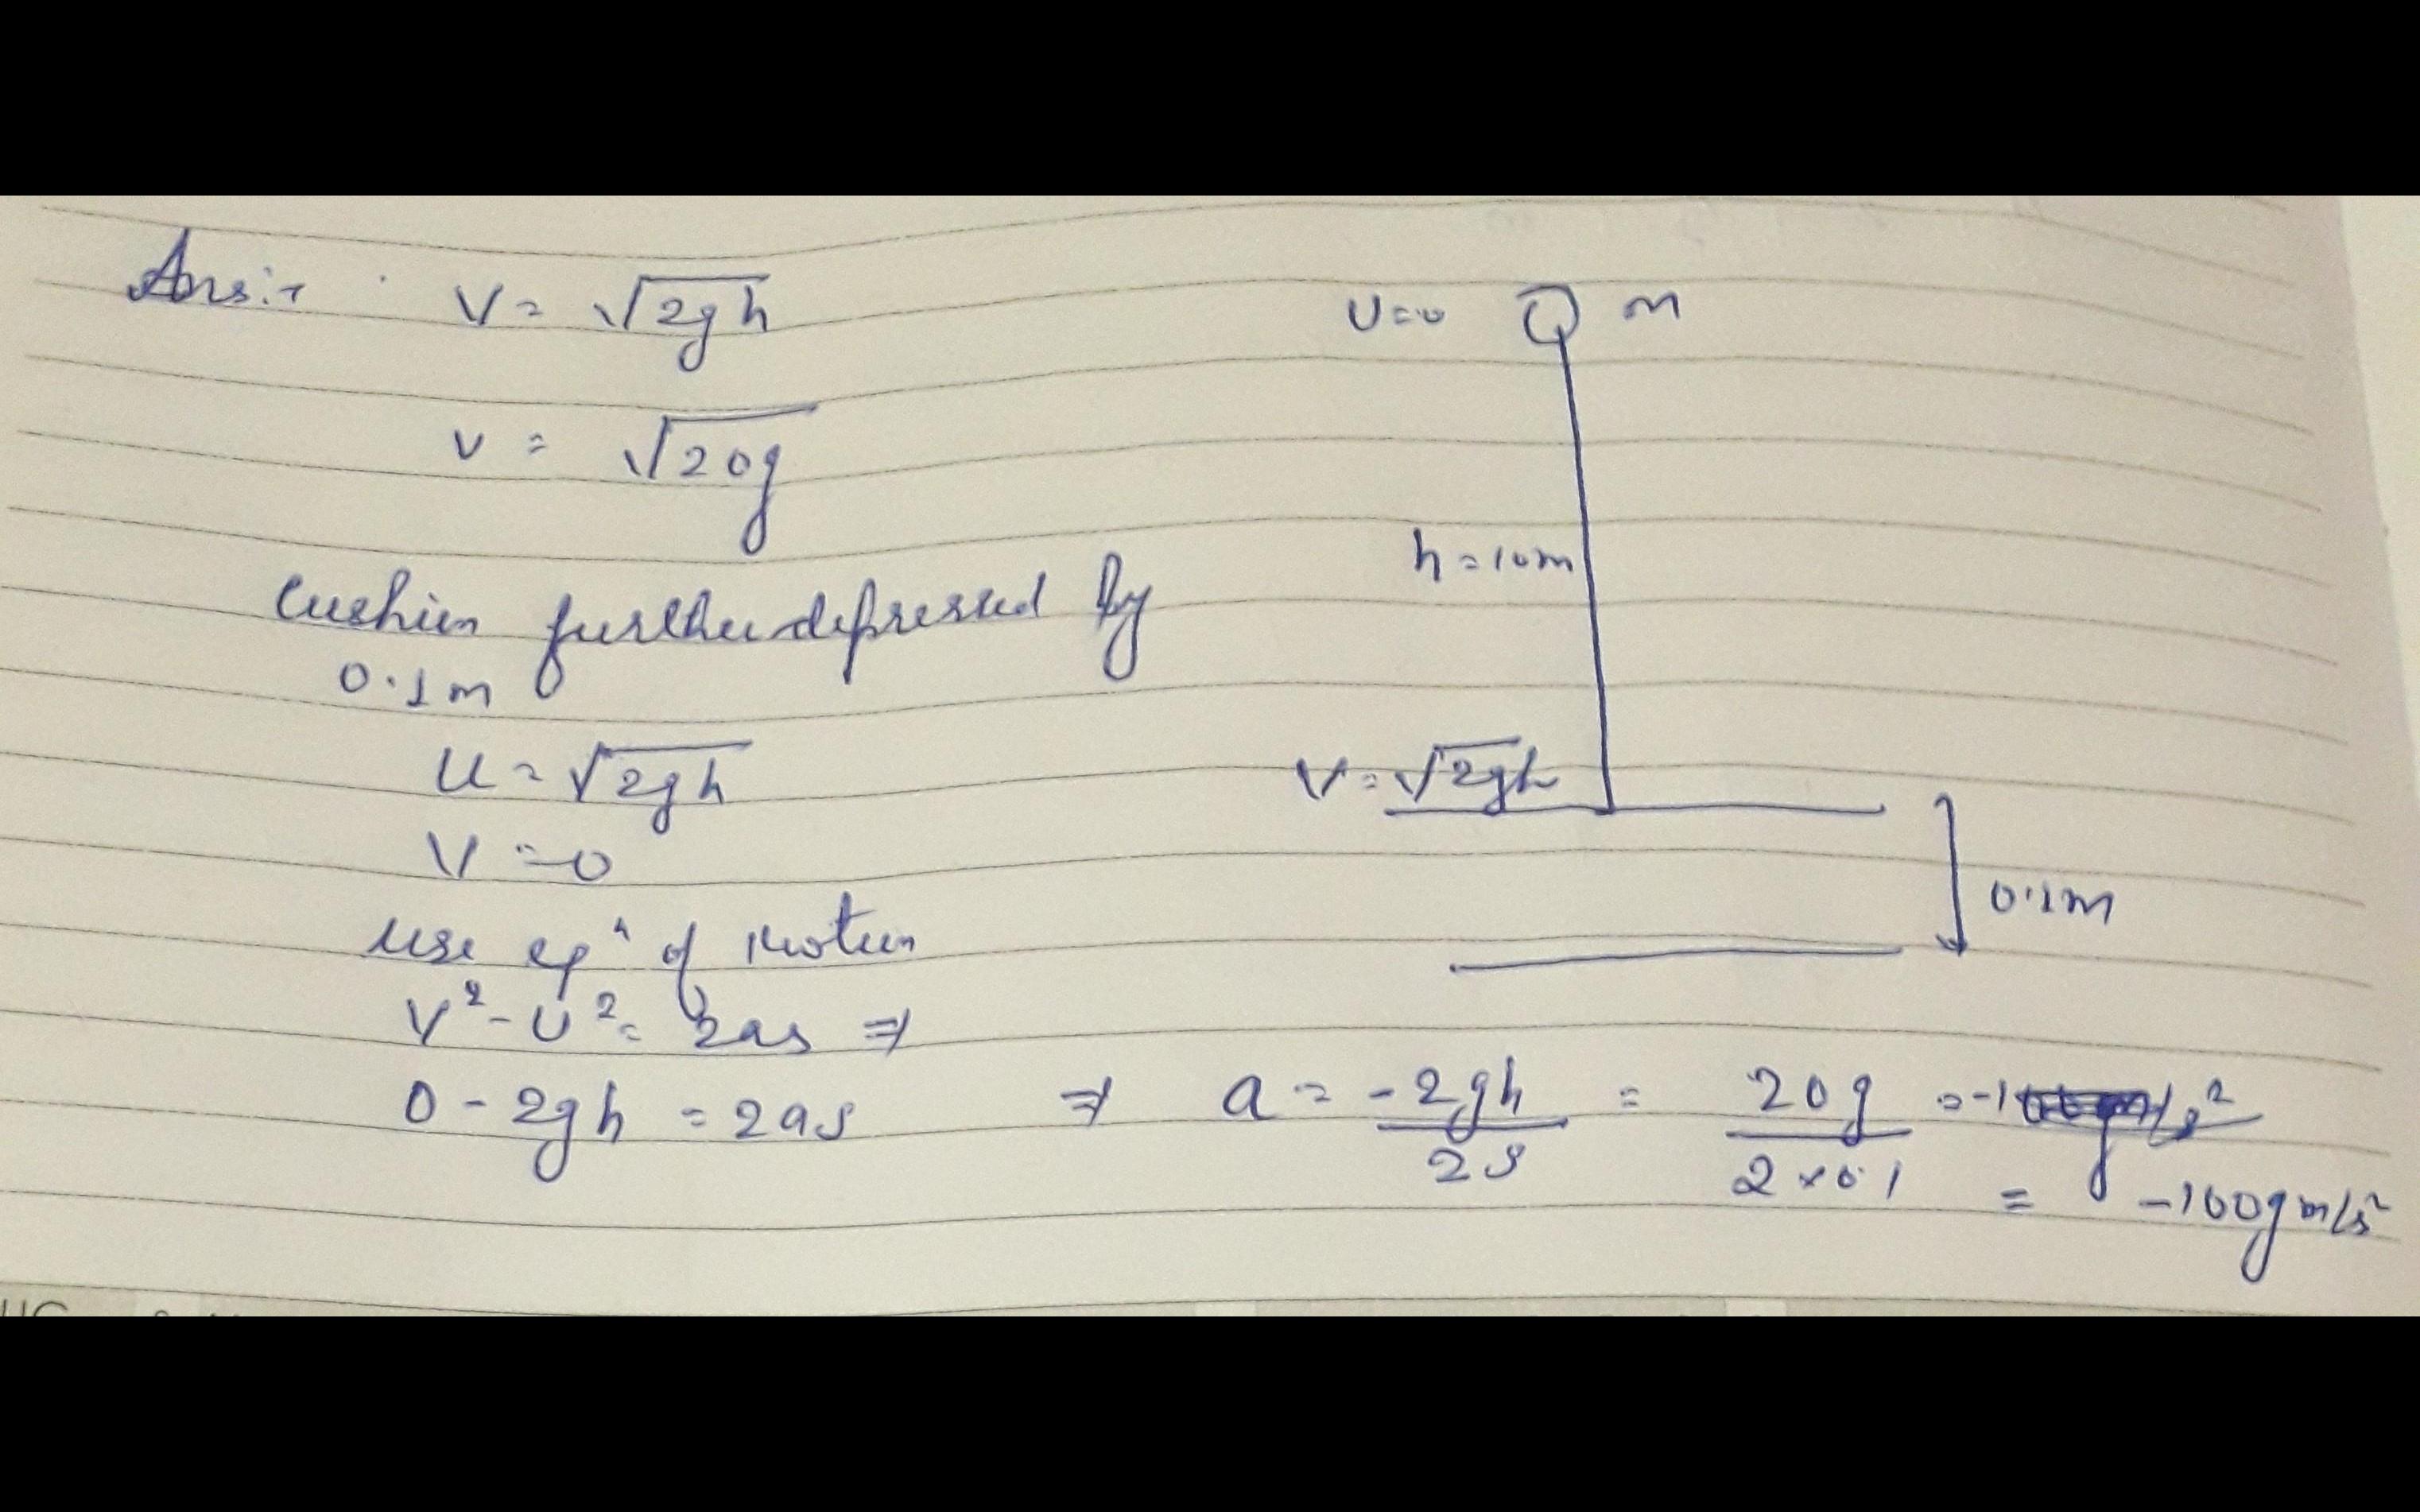 Ans:-
V = √2gh
v = √20g
Cushion further depressed by
0.1m
u = √2gh
V = 0
use eqⁿ of Motion
V² - U² = 2as ⇒
0 - 2gh = 2as ⇒ a = -2gh/2s = 20g/2×0.1
= -100g m/s²
U=0 m
h=10m
V=√2gh
0.1m